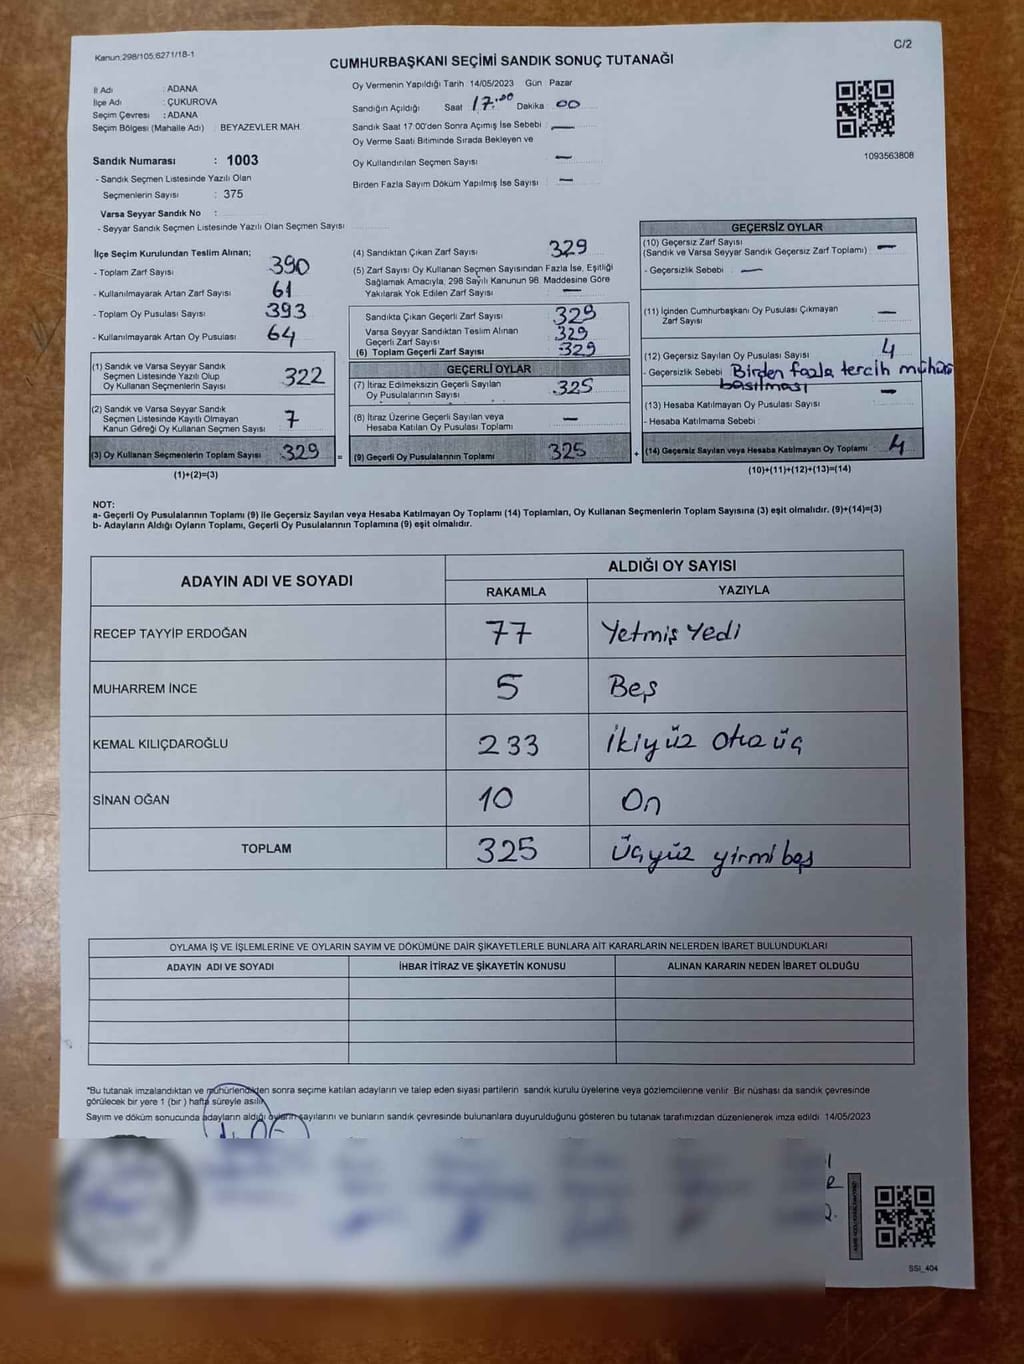 Kanun:298/105;6271/18-1
C/2
CUMHURBAŞKANI SEÇİMİ SANDIK SONUÇ TUTANAĞI
İl Adı : ADANA
İlçe Adı : ÇUKUROVA
Seçim Çevresi : ADANA
Seçim Bölgesi (Mahalle Adı) : BEYAZEVLER MAH.
Sandık Numarası : 1003
- Sandık Seçmen Listesinde Yazılı Olan
Seçmenlerin Sayısı : 375
Varsa Seyyar Sandık No :
- Seyyar Sandık Seçmen Listesinde Yazılı Olan Seçmen Sayısı
Oy Vermenin Yapıldığı Tarih 14/05/2023 Gün Pazar
Sandığın Açıldığı Saat 17:00 Dakika 00
Sandık Saat 17 00'den Sonra Açımış İse Sebebi —
Oy Verme Saati Bitiminde Sırada Bekleyen ve
Oy Kullandırılan Seçmen Sayısı —
Birden Fazla Sayım Döküm Yapılmış İse Sayısı —
1093563808
İlçe Seçim Kurulundan Teslim Alınan;
- Toplam Zarf Sayısı 390
- Kullanılmayarak Artan Zarf Sayısı 61
- Toplam Oy Pusulası Sayısı 393
- Kullanılmayarak Artan Oy Pusulası 64
(1) Sandık ve Varsa Seyyar Sandık
Seçmen Listesinde Yazılı Olup
Oy Kullanan Seçmenlerin Sayısı 322
(2) Sandık ve Varsa Seyyar Sandık
Seçmen Listesinde Kayıtlı Olmayan
Kanun Gereği Oy Kullanan Seçmen Sayısı 7
(3) Oy Kullanan Seçmenlerin Toplam Sayısı 329 =
(1)+(2)=(3)
(4) Sandıktan Çıkan Zarf Sayısı 329
(5) Zarf Sayısı Oy Kullanan Seçmen Sayısından Fazla İse, Eşitliği
Sağlamak Amacıyla, 298 Sayılı Kanunun 98. Maddesine Göre
Yakılarak Yok Edilen Zarf Sayısı —
Sandıkta Çıkan Geçerli Zarf Sayısı 329
Varsa Seyyar Sandıktan Teslim Alınan
Geçerli Zarf Sayısı 329
(6) Toplam Geçerli Zarf Sayısı 329
GEÇERLİ OYLAR
(7) İtiraz Edilmeksizin Geçerli Sayılan
Oy Pusulalarının Sayısı 325
(8) İtiraz Üzerine Geçerli Sayılan veya
Hesaba Katılan Oy Pusulası Toplamı —
(9) Geçerli Oy Pusulalarının Toplamı 325 +
GEÇERSİZ OYLAR
(10) Geçersiz Zarf Sayısı
(Sandık ve Varsa Seyyar Sandık Geçersiz Zarf Toplamı) —
- Geçersizlik Sebebi : —
(11) İçinden Cumhurbaşkanı Oy Pusulası Çıkmayan
Zarf Sayısı —
(12) Geçersiz Sayılan Oy Pusulası Sayısı 4
- Geçersizlik Sebebi Birden fazla tercih mühür
basılması
(13) Hesaba Katılmayan Oy Pusulası Sayısı —
- Hesaba Katılmama Sebebi
(14) Geçersiz Sayılan veya Hesaba Katılmayan Oy Toplamı 4
(10)+(11)+(12)+(13)=(14)
NOT:
a- Geçerli Oy Pusulalarının Toplamı (9) ile Geçersiz Sayılan veya Hesaba Katılmayan Oy Toplamı (14) Toplamları, Oy Kullanan Seçmenlerin Toplam Sayısına (3) eşit olmalıdır. (9)+(14)=(3)
b- Adayların Aldığı Oyların Toplamı, Geçerli Oy Pusulalarının Toplamına (9) eşit olmalıdır.
ADAYIN ADI VE SOYADI
ALDIĞI OY SAYISI
RAKAMLA YAZIYLA
RECEP TAYYİP ERDOĞAN 77 Yetmiş Yedi
MUHARREM İNCE 5 Beş
KEMAL KILIÇDAROĞLU 233 İkiyüz otuz üç
SİNAN OĞAN 10 On
TOPLAM 325 Üçyüz yirmi beş
OYLAMA İŞ VE İŞLEMLERİNE VE OYLARIN SAYIM VE DÖKÜMÜNE DAİR ŞİKAYETLERLE BUNLARA AİT KARARLARIN NELERDEN İBARET BULUNDUKLARI
ADAYIN ADI VE SOYADI İHBAR İTİRAZ VE ŞİKAYETİN KONUSU ALINAN KARARIN NEDEN İBARET OLDUĞU
*Bu tutanak imzalandıktan ve mühürlendikten sonra seçime katılan adayların ve talep eden siyasi partilerin sandık kurulu üyelerine veya gözlemcilerine verilir Bir nüshası da sandık çevresinde
görülecek bir yere 1 (bir ) hafta süreyle asılır.
Sayım ve döküm sonucunda adayların aldığı oyların sayılarını ve bunların sandık çevresinde bulunanlara duyurulduğunu gösteren bu tutanak tarafımızdan düzenlenerek imza edildi. 14/05/2023
SSI_404